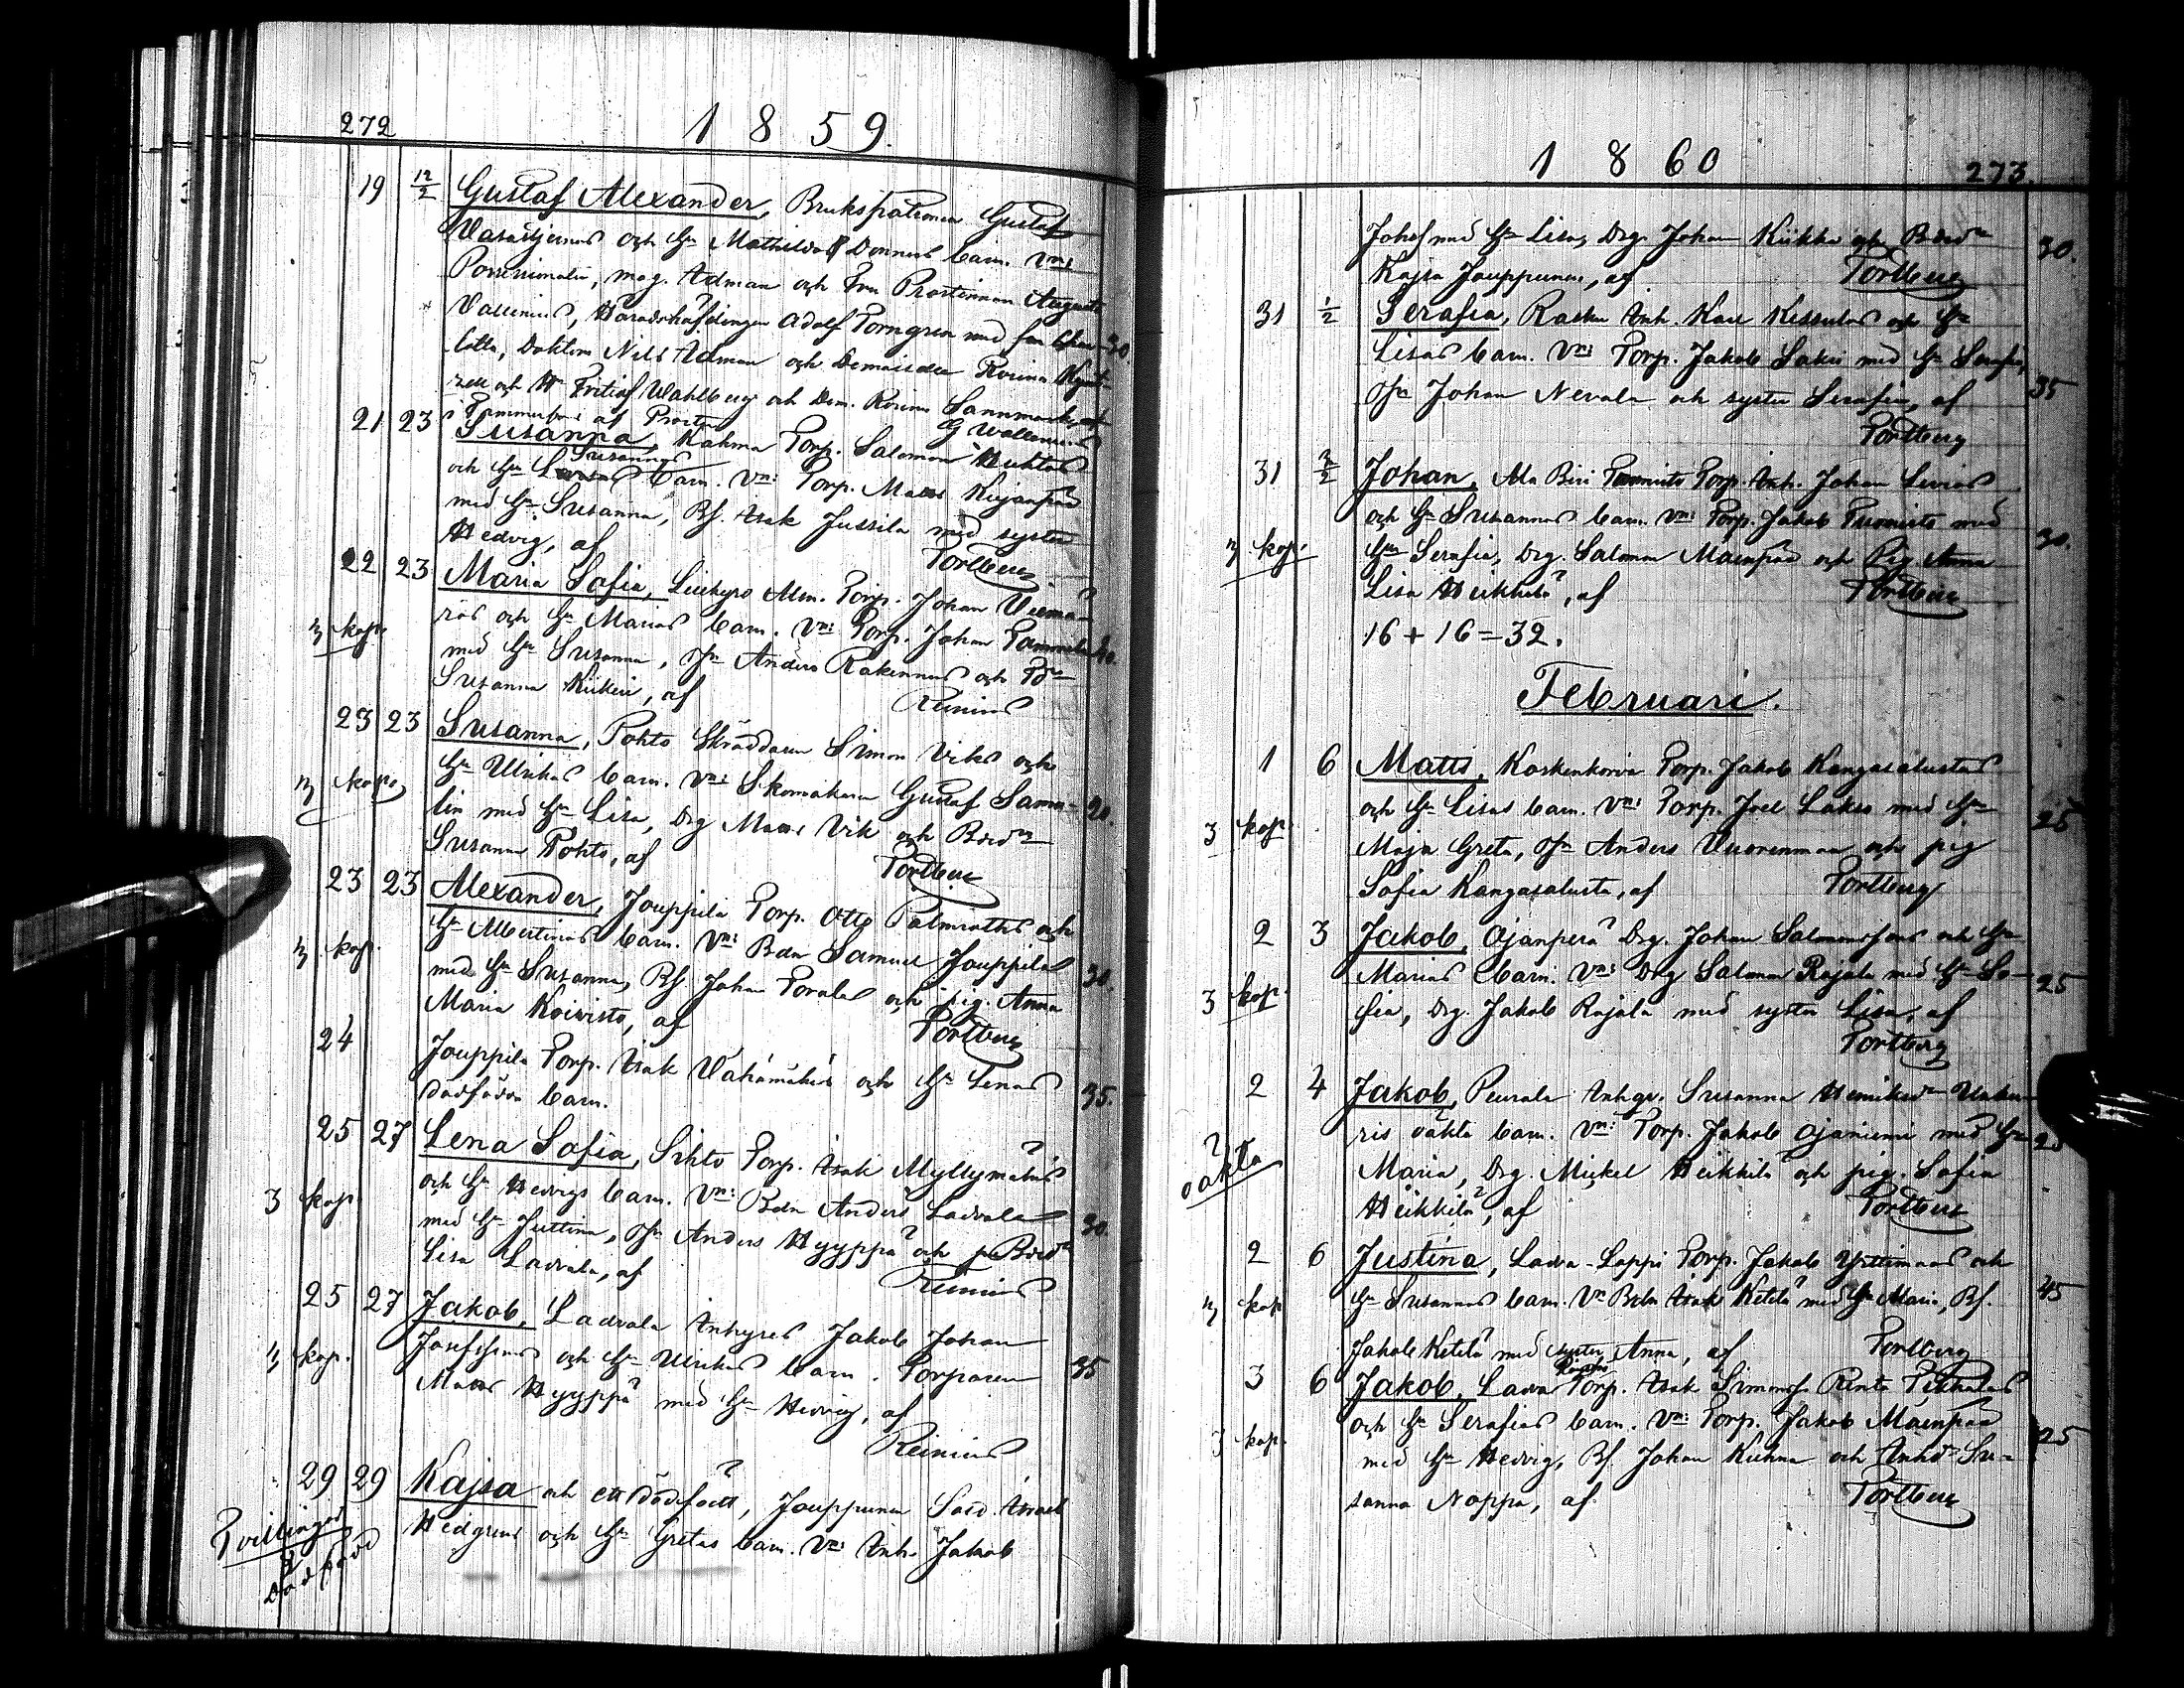 272
1859.
19 12/2 Gustaf Alexander, Brukspatronen Gustaf
Wasastjernas och Hu Mathilda Donners barn. Vn:
Provisionaln, mag. Adman och Fru Prostinnan Augusta
Vallenius, Häradshöfdingen Adolf Forngren med fru Char- 30.
lotta, Doktorn Nils Adman och Demoiselle Rosina
och Hr Fritiof Wahlberg och Dem. Rosina Sannmark
i Tammerfors af Prosten G Wallenius
21 23 Susanna, Kahma Torp. Salomon Huhtas
Susannas
och Hu barn. Vn: Torp. Matts Kujanpää
med Hu Susanna, Bs. Isak Jussila med syster
Hedvig, af Portberg
22 23 Maria Sofia, Torp. Johan
och Hu Marias barn. Vn: Torp. Johan Tammela 20.
3 kop.
med Hu Susanna, Anders Rakennus och
Susanna Kiikeri, af Reinius
23 23 Susanna, Pohto Skräddaren Simon Viks och
Hu Ulrikas barn. Vn: Skomakaren Gustaf Samu- 20.
3 kop.
lin med Hu Lisa, Drg Matts Vik och Bdr
Susanna Pohto, af Portberg
23 23 Alexander, Jouppila Torp. Otto Palmroths och
Hu Albertinas barn. Vn: Bdn Samuel Jouppila
3 kop. 30.
med Hu Susanna, Bs. Johan Porala och pig. Anna
Maria Koivisto, af Portberg
24 Jouppila Torp. Isak Vähämäkis och Hu Lenas
dödfödda barn. 35.
25 27 Lena Sofia, Sihto Torp. Isak Myllymäkis
och Hu Hedvigs barn. Vn: Bdn Anders Ladvala
3 kop 30.
med Hu Justina, Anders Hyyppä och Bdr
Lisa Ladvala, af Reinius
25 27 Jakob, Ladvala Inhyses Jakob Johan
Josefssons och Hu Ulrikas barn. Torparen 35
3 kop.
Matts Hyyppä med Hu Hedvig, af
Reinius
29 29 Kajsa och ett dödfödt, Jouppunen Sold. Israel
Hedgrens och Hu Gretas barn. Vn: Inh. Jakob
Tvillingar
dödfödd
1860
273.
med Hu Lisa, Drg. Johan Kiikka och Bdr 30.
Kajsa Jouppunen, af Portberg
31 1/2 Serafia, Rasku Inh. Karl Kissulas och Hu
Lisas barn. Vn: Torp. Jakob Saku med Hu Serafia, 35
Johan Nevala och syster Serafia, af
Portberg
31 3/2 Johan, Ala Biri Tuomisto Torp. Inh. Johan
och Hu Susannas barn. Vn: Torp. Jakob Tuomisto med
3 kop. 30.
Hu Serafia, Drg. Salomon Mäenpää och Pig Anna
Lisa Heikkilä, af Portberg
16 + 16 = 32.
Februari.
1 6 Matts, Koskenkorva Torp. Jakob Kangasalustas
och Hu Lisas barn. Vn: Torp. Joel Lakso med Hu
3 kop. 25
Maja Greta, Anders Vuorenmaa och pig
Sofia Kangasalusta, af Portberg
2 3 Jakob, Ojanperä Drg. Johan Salomonssons och Hu
Marias barn. Vn: Drg Salomon Rajala med Hu So-
3 kop. 25
fia, Drg. Jakob Rajala med syster Lisa, af
Portberg
2 4 Jakob, Peurala Inhys. Susanna Henriksdr
ris oäkta barn. Vn: Torp. Jakob Ojaniemi med Hu 25
oäkta
Maria, Drg. Mickel Heikkilä och pig. Sofia
Heikkilä, af Portberg
2 6 Justina, Ladva-Lappi Torp. Jakob Yrttimaas och
3 kop
Hu Susannas barn. Vn Bdn Isak Ketelä med Hu Maria, Bs. 45
Jakob Ketelä med syster Anna, af Portberg
3 6 Jakob, Ladva Torp. Isak Simonss Rinta Pikkalas
och Hu Serafias barn. Vn: Torp. Jakob Mäenpää
3 kop. 25
med Hu Hedvig, Bs. Johan Kuhna och Inhdr Su-
sanna Noppa, af Portberg